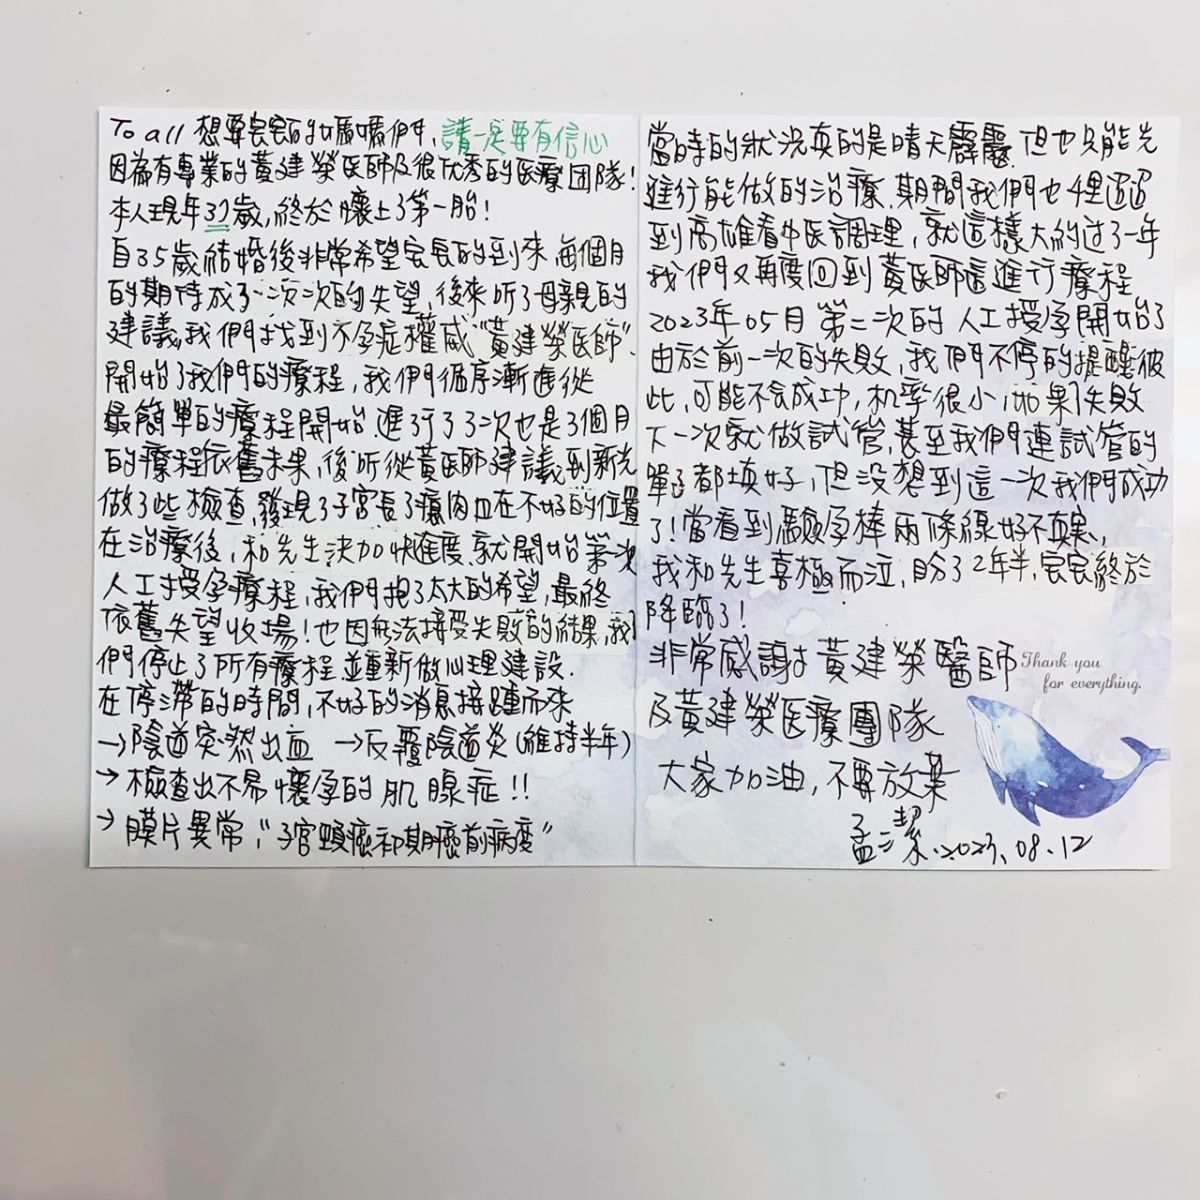 To all 想要寶寶的媽媽們, 請一定要有信心
因為有專業的黃建榮医師及很优秀的医療团隊!
本人現年37歲, 終於懷上了第一胎!
自35歲結婚後非常希望宝宝的到來, 每個月
的期待成了一次次的失望, 後來听了母親的
建議, 我們找到不孕症權威"黃建榮医師".
開始了我們的療程, 我們循序漸進從
最簡單的療程開始. 進行了3次也是3個月
的療程依舊未果, 後听從黃医師建議到新光
做了些檢查, 發現了子宮長了瘜肉且在不好的位置
在治療後, 和先生決加快進度, 就開始第一次
人工授孕療程, 我們抱了太大的希望, 最終
依舊失望收場! 也因無法接受失敗的結果, 我
們停止了所有療程並重新做心理建設.
在停滯的時間, 不好的消息接踵而來
→陰道突然出血 →反覆陰道炎(維持半年)
→檢查出不易懷孕的肌腺症!!
→膜片異常, "子宮頸癌初期癌前病变"
當時的狀況真的是晴天霹靂. 但也只能先
進行能做的治療. 期間我們也千里迢迢
到高雄看中医調理, 就這樣大約过了一年
我們又再度回到黃医師這進行療程
2023年05月 第二次的 人工授孕開始了
由於前一次的失敗, 我們不停的提醒彼
此, 可能不会成功, 机率很小, 如果失敗
下一次就做試管, 甚至我們連試管的
單子都填好, 但沒想到這一次我們成功
了! 當看到驗孕棒兩條線好不真実,
我和先生喜極而泣, 盼了2年半, 宝宝終於
降臨了!
非常感謝 黃建榮醫師
Thank you
for everything.
及黃建榮医療團隊
大家加油, 不要放棄
孟潔. 2023. 08. 12